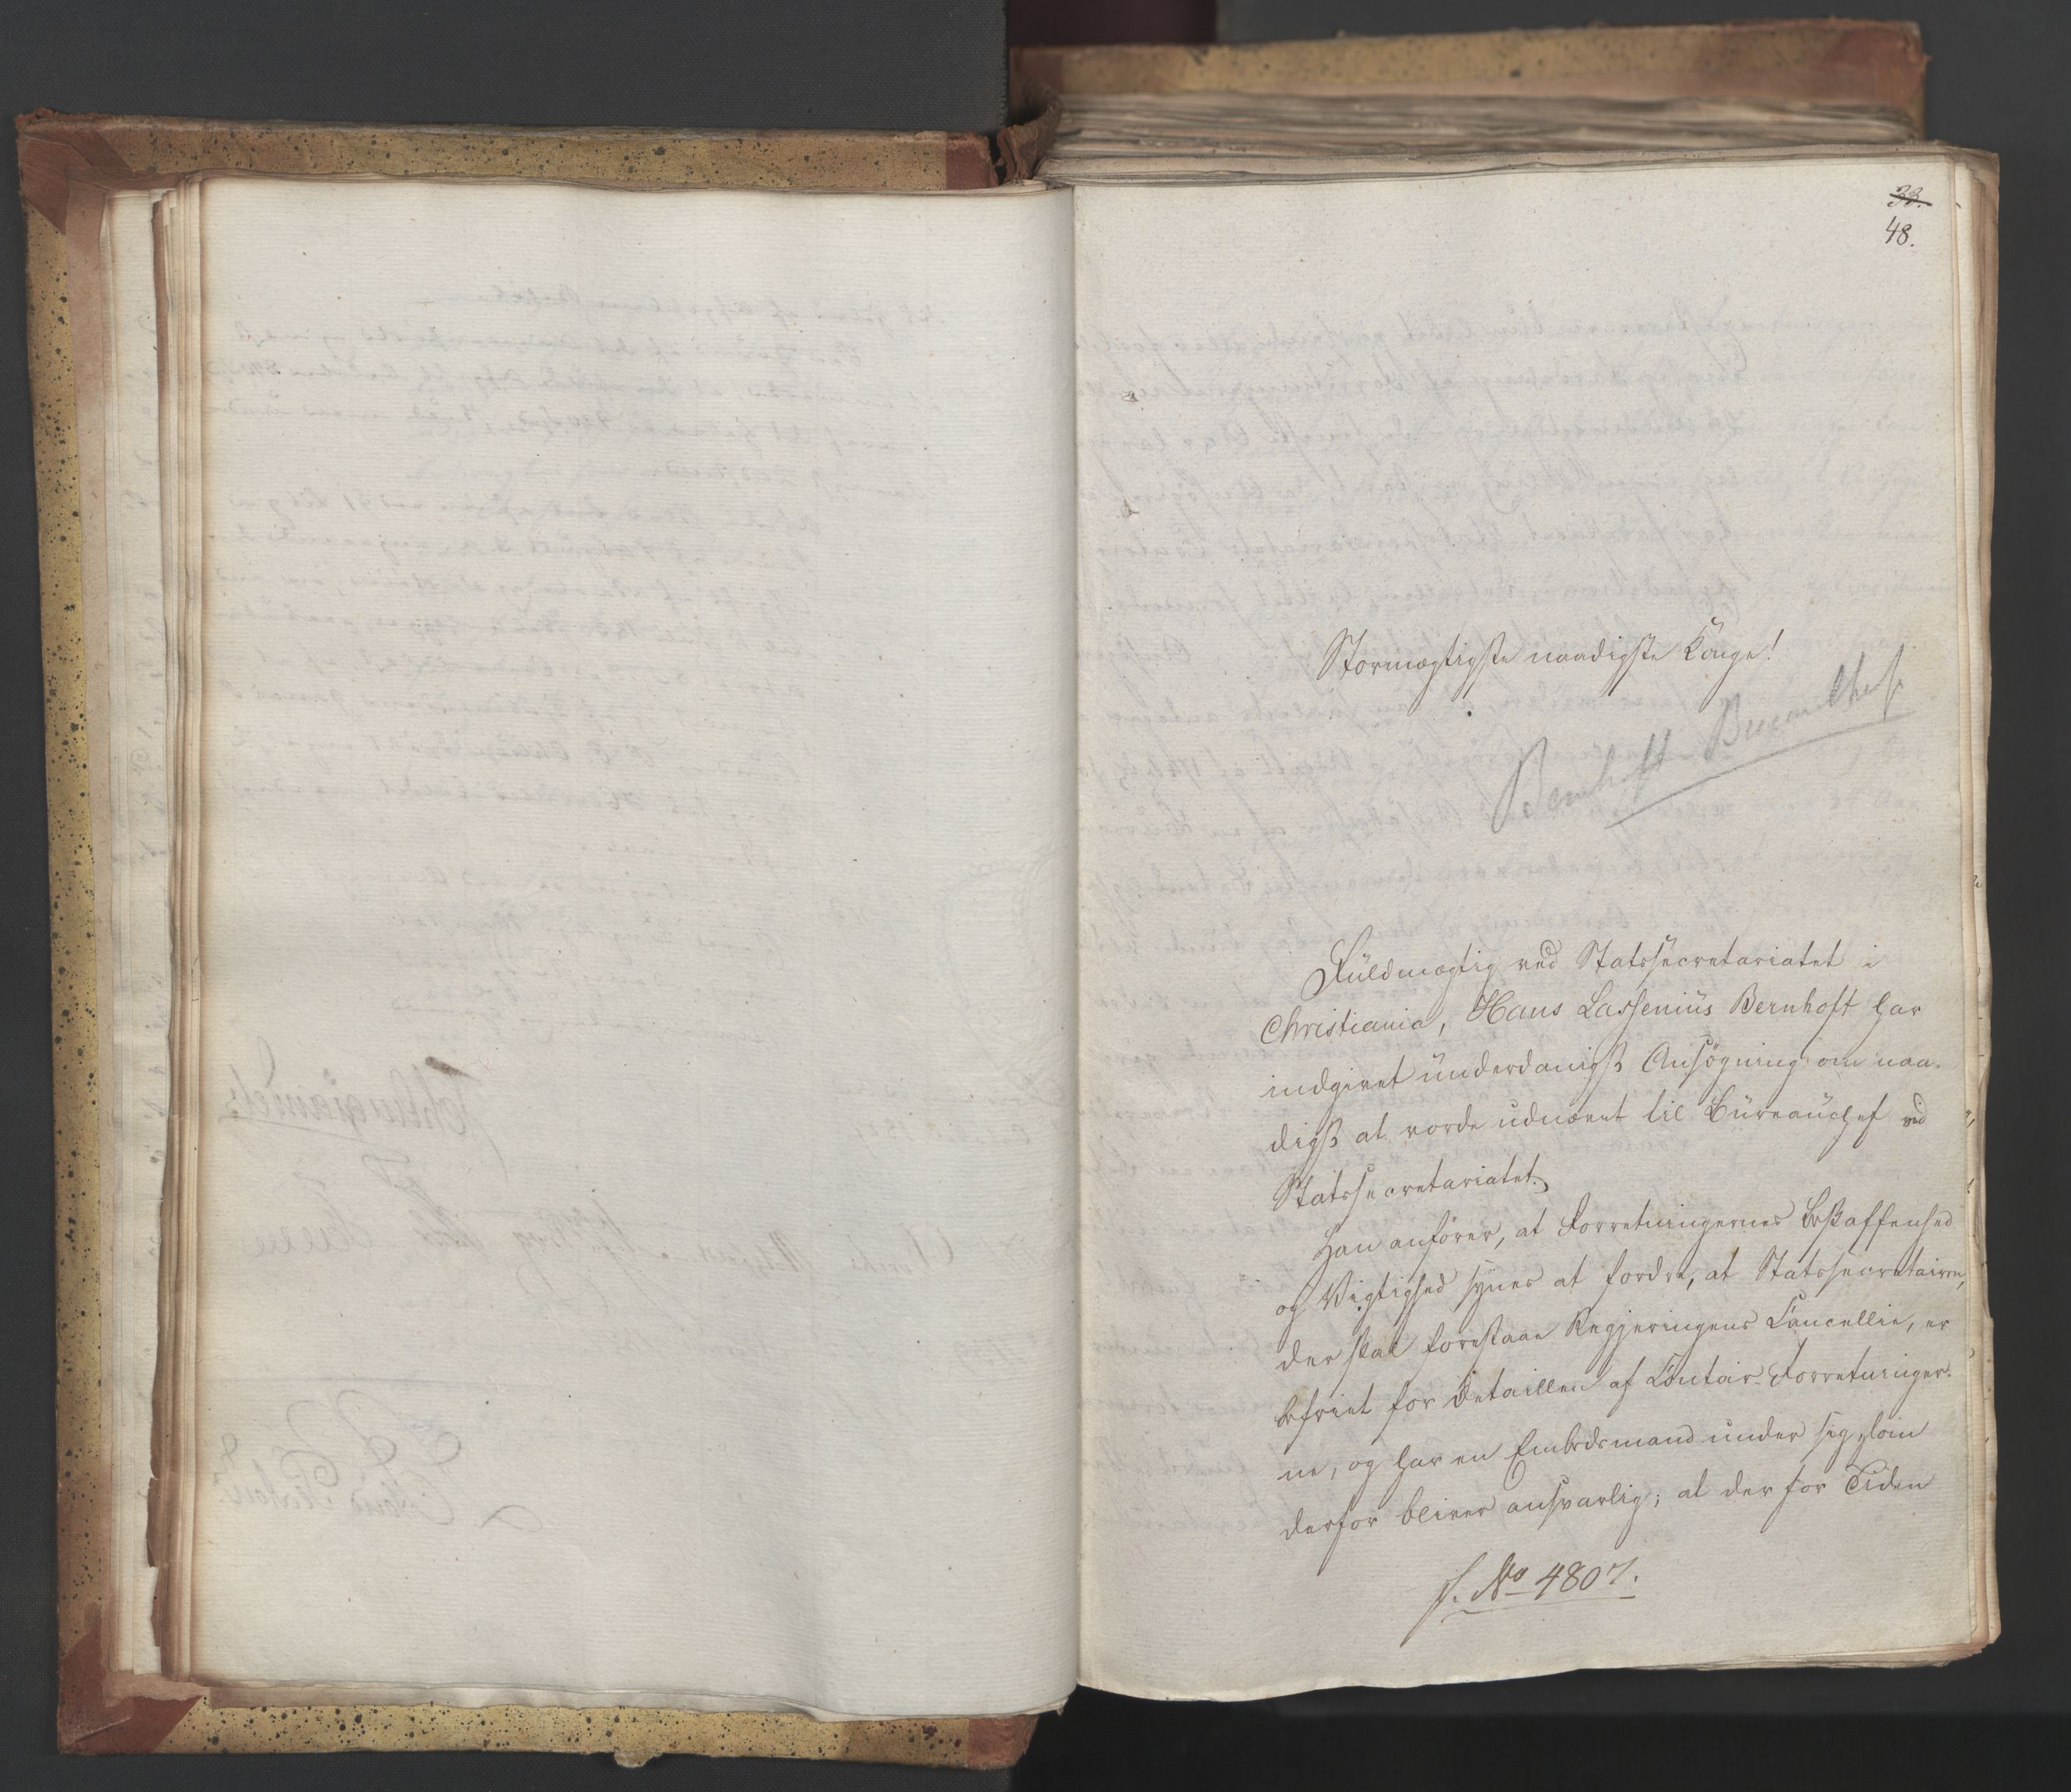 33.
48.
Stormægtigste naadigste Konge!
Bernhoft Bureauchef
Fuldmægtig ved Statssecretariatet i
Christiania, Hans Lassenius Bernhoft har
indgivet underdanigst Ansøgning om naa-
digst at vorde udnævnt til Bureauchef ved
Statssecretariatet.
Han anfører, at Forretningernes Beskaffenhed
og Vigtighed synes at fordre, at Statssecretairen,
der skal forestaae Regjeringens Cancellie, er
befriet for Detaillen af Contoir-Forretninger-
ne, og har en Embedsmand under sig, som
derfor bliver ansvarlig; at der for Tiden
J. No 4807.